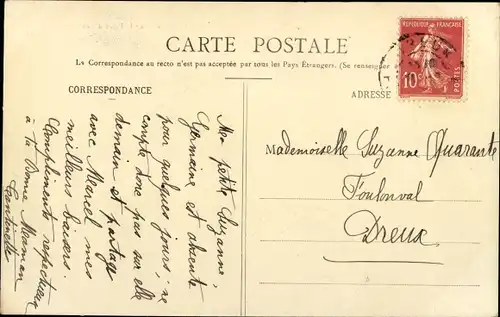 CARTE POSTALE
La Correspondance au recto n'est pas acceptée par tous les Pays Étrangers. (Se renseigner à
CORRESPONDANCE
ADRESSE
RÉPUBLIQUE FRANÇAISE
10c
POSTES
Ma petite Suzanne,
Germaine est absente
pour quelques jours; ne
compte donc pas sur elle
demain et partage
avec Marcel mes
meilleurs baisers.
Compliments respectueux
à ta Bonne Maman
Mademoiselle Suzanne Quarante
Foulonval
Dreux